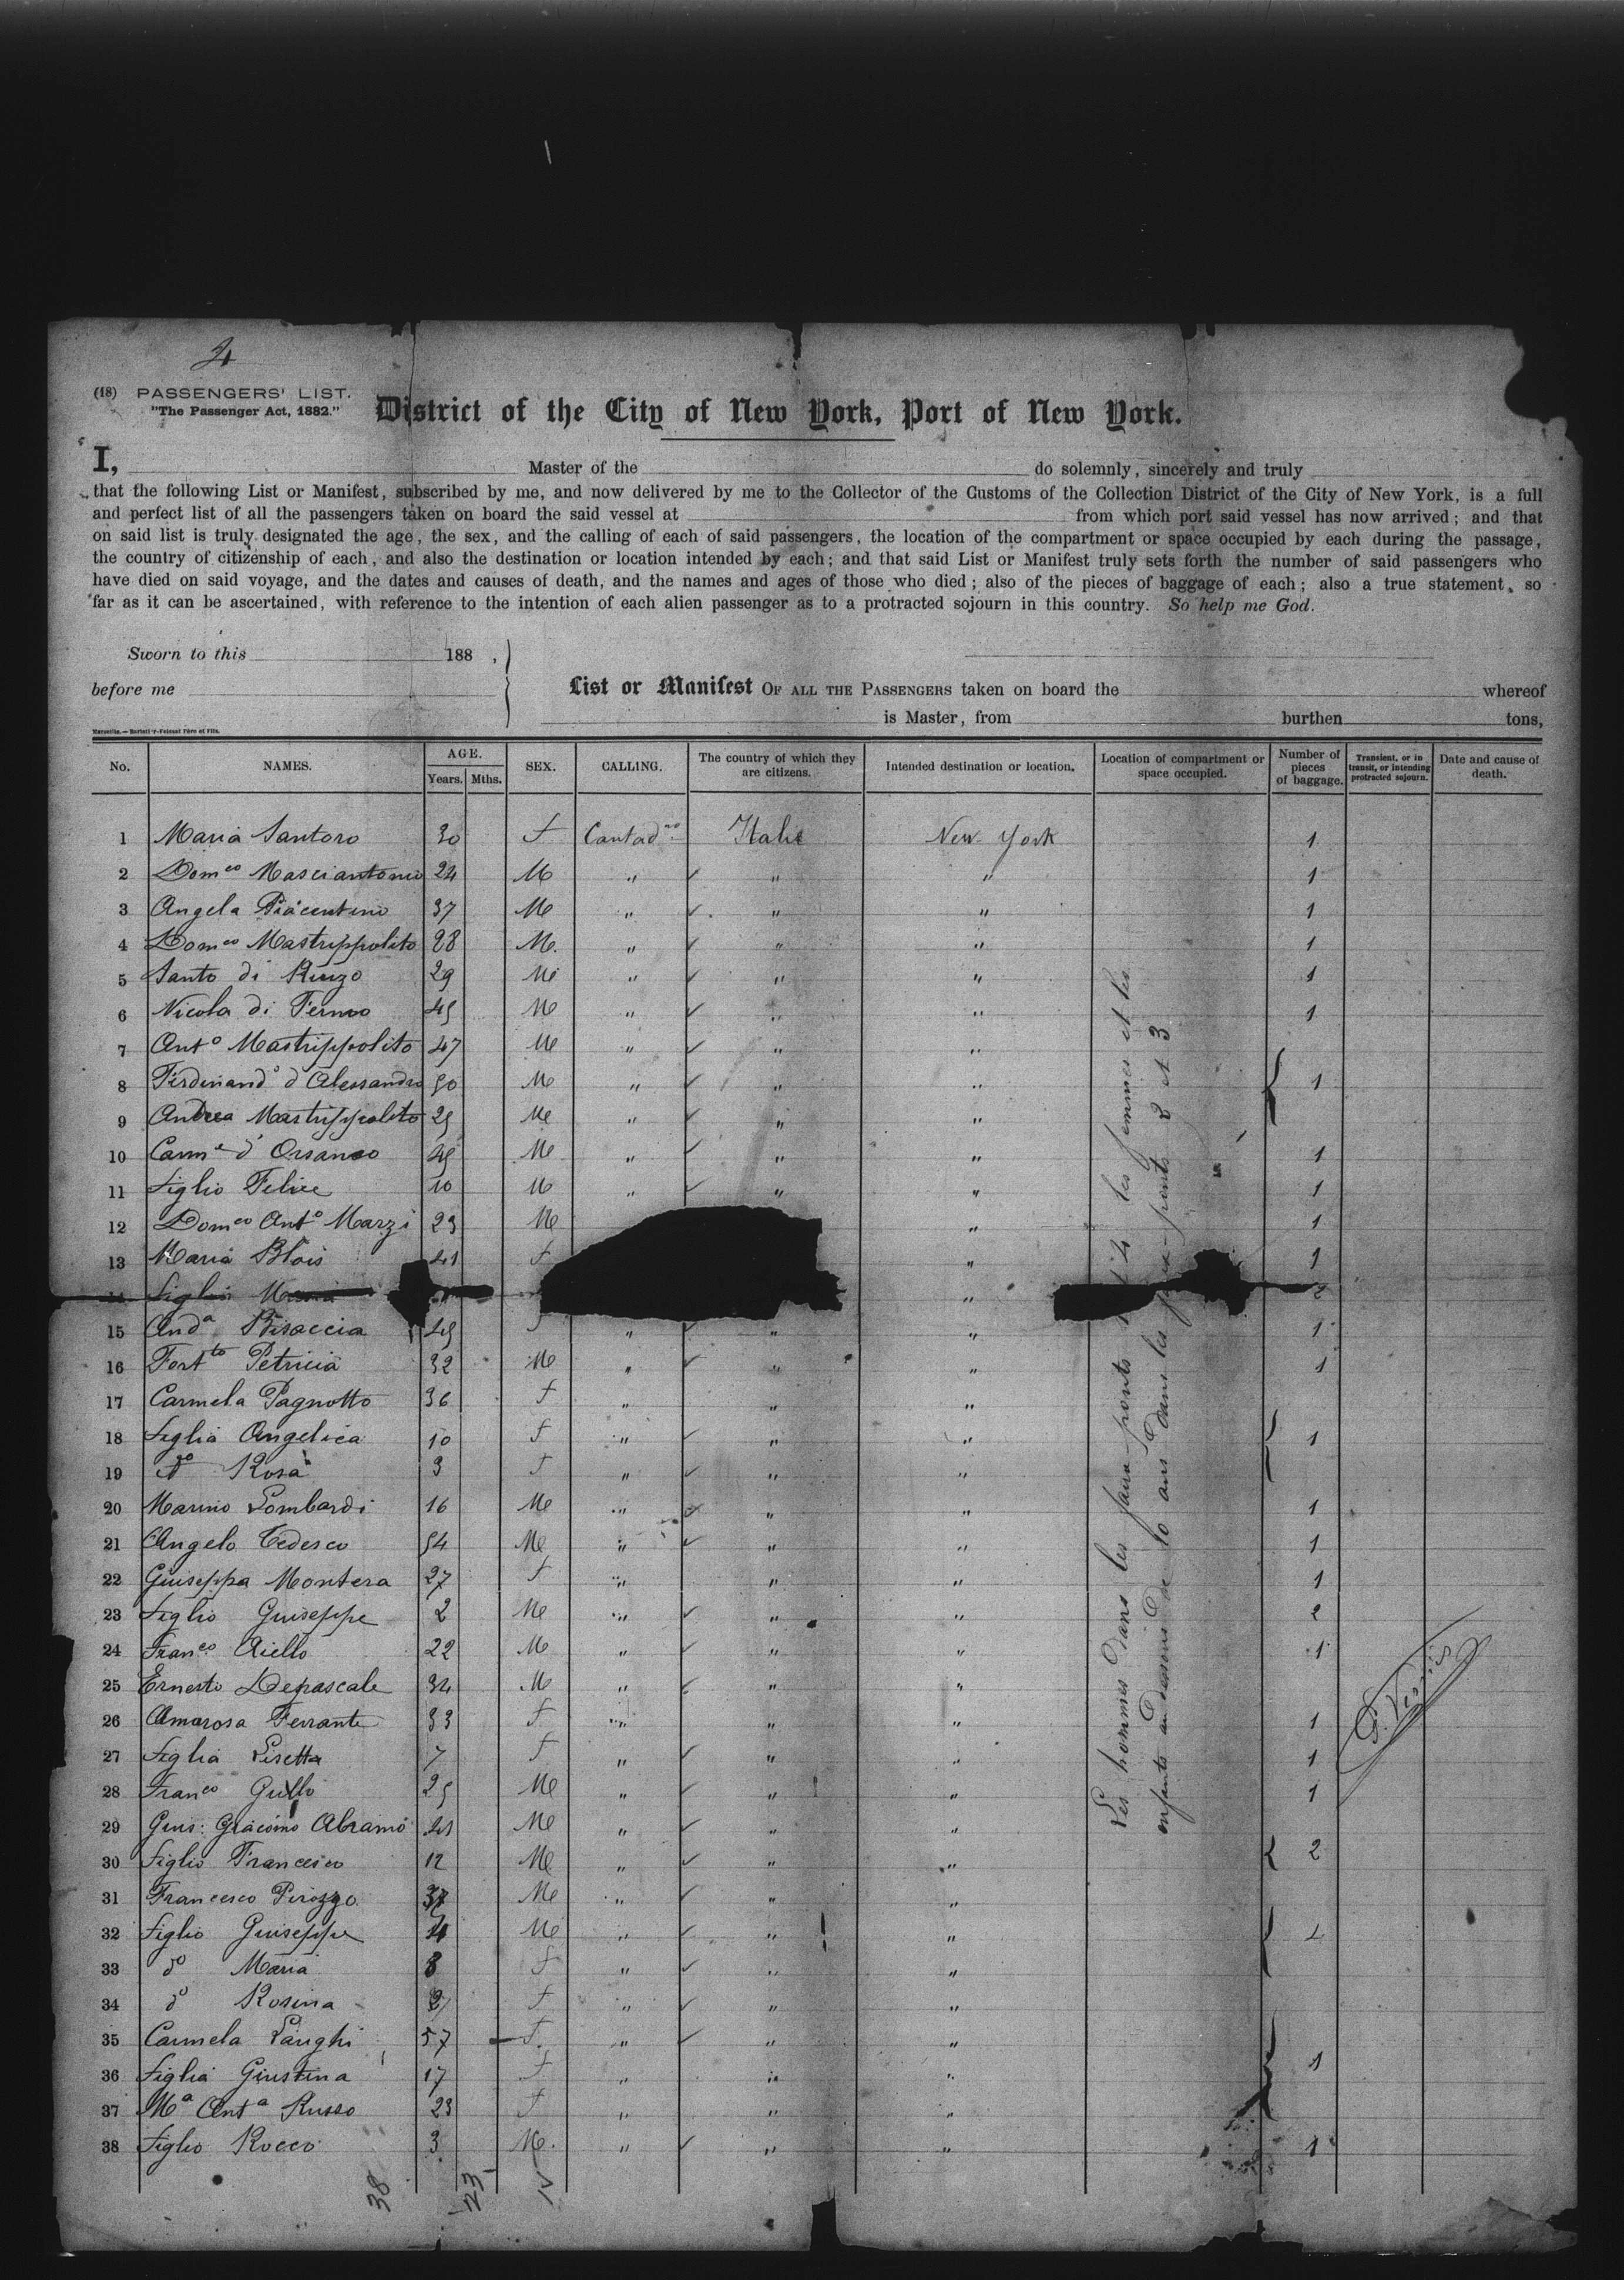 4
(18) PASSENGERS' LIST.
"The Passenger Act, 1882."
District of the City of New York, Port of New York.
I, Master of the do solemnly, sincerely and truly
that the following List or Manifest, subscribed by me, and now delivered by me to the Collector of the Customs of the Collection District of the City of New York, is a full
and perfect list of all the passengers taken on board the said vessel at from which port said vessel has now arrived; and that
on said list is truly designated the age, the sex, and the calling of each of said passengers, the location of the compartment or space occupied by each during the passage,
the country of citizenship of each, and also the destination or location intended by each; and that said List or Manifest truly sets forth the number of said passengers who
have died on said voyage, and the dates and causes of death, and the names and ages of those who died; also of the pieces of baggage of each; also a true statement, so
far as it can be ascertained, with reference to the intention of each alien passenger as to a protracted sojourn in this country. So help me God.
Sworn to this 188 ,
before me
List or Manifest OF ALL THE PASSENGERS taken on board the whereof
is Master, from burthen tons,
No. NAMES. AGE. Years. Mths. SEX. CALLING. The country of which they are citizens. Intended destination or location. Location of compartment or space occupied. Number of pieces of baggage. Transient, or in transit, or intending protracted sojourn. Date and cause of death.
1 Maria Santoro 30 f Contad Italie New York 1
2 Domco Masciantonio 24 M " " " 1
3 Angela Piacentino 37 M " " " 1
4 Domco Mastrippolito 28 M. " " " 1
5 Santo di Rinzo 29 M " " " 1
6 Nicola di Fermo 45 M " " " 1
7 Anto Mastrippolito 47 M " " "
8 Ferdinando d'Alessandro 50 M " " " 1
9 Andrea Mastrippolito 25 M " " "
10 Carme d' Orsaneo 45 M " " " 1
11 figlio Felice 10 M " " " 1
12 Domco Anto Marzi 23 M " 1
13 Maria Blois 41 f " 1
figlia " 2
15 Anda Bisaccia 45 f " " " 1
16 Fortto Petricia 32 M " " " 1
17 Carmela Pagnotto 36 f " " "
18 figlia Angelica 10 f " " " 1
19 do Rosa 3 f " " "
20 Marino Lombardi 16 M " " " 1
21 Angelo Tedesco 54 M " " " 1
22 Giuseppa Montera 27 f " " " 1
23 figlio Giuseppe 2 M " " " 2
24 Franco Aiello 22 M " " " 1
25 Ernesto Depascale 34 M " " "
26 Amorosa Ferrante 33 f " " " 1
27 figlia Lisetta 7 f " " " 1
28 Franco Gullo 25 M " " " 1
29 Gius: Giacomo Abramo 41 M " " "
30 figlio Francesco 12 M " " " 2
31 Francesco Pirozzo 37 M " " "
32 figlio Giuseppe M " " " 2
33 do Maria 8 f " " "
34 do Rosina f " " "
35 Carmela Langhi 57 f. " " "
36 figlia Giustina 17 f " " " 1
37 Ma Anta Russo 23 f " " "
38 figlio Rocco 3 M. " " " 1
Les hommes dans les faux-ponts 1 & 4 les femmes et les
enfants au dessous de 10 ans dans les faux-ponts 2 et 3
38
23
15